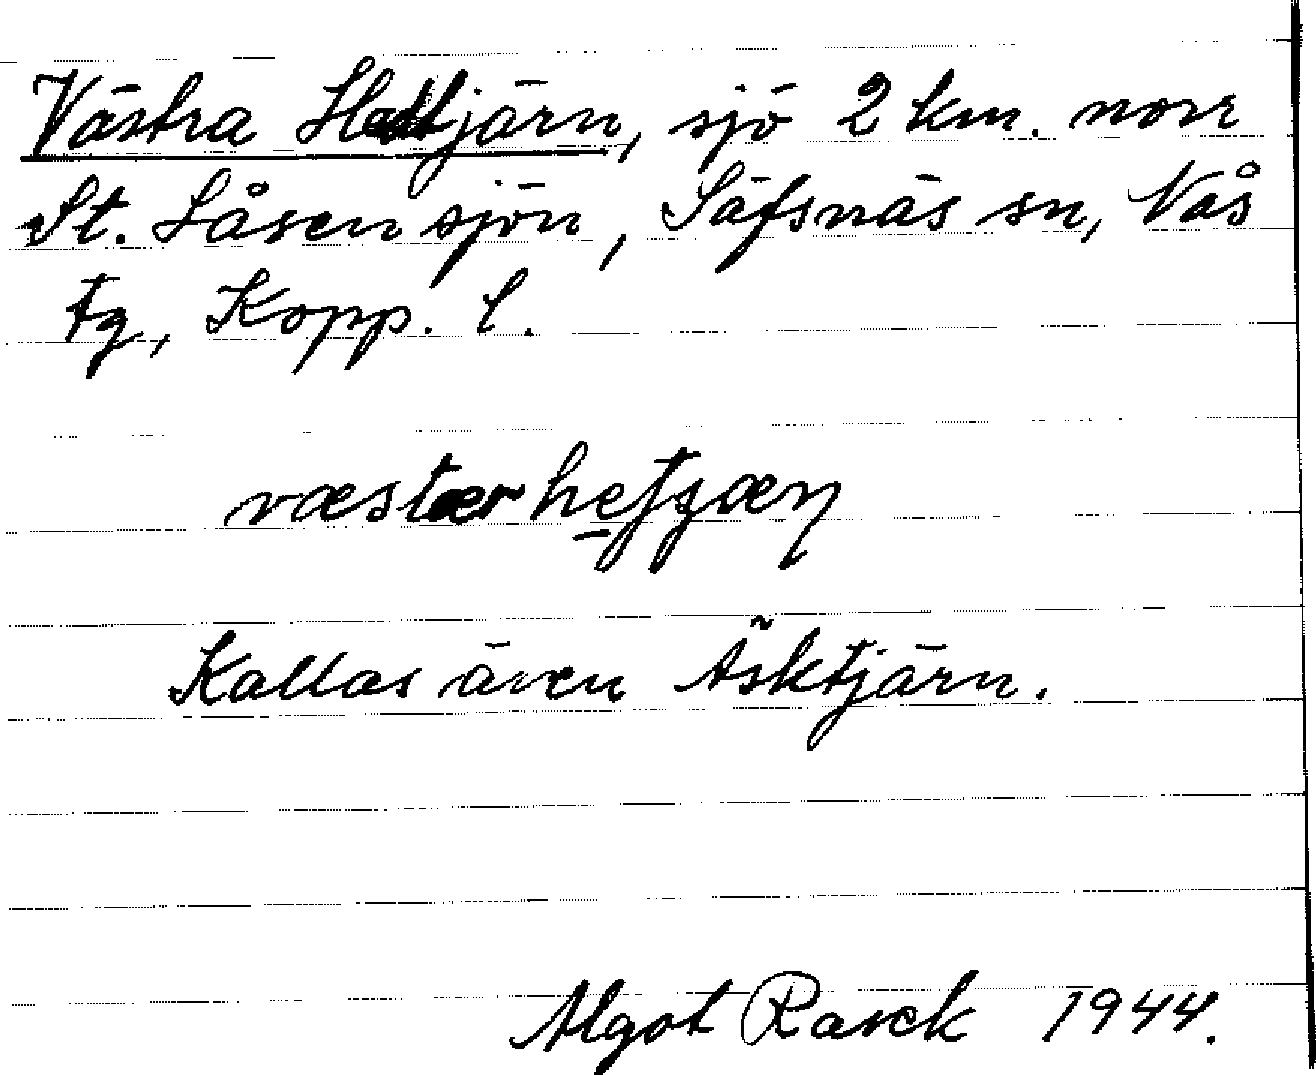 Västra Hettjärn, sjö 2 km. norr
St. Låsen sjön, Säfsnäs sn, Nås
fg, Kopp. l.
væstær
Kallas även Äsktjärn.
Algot Rasck 1944.